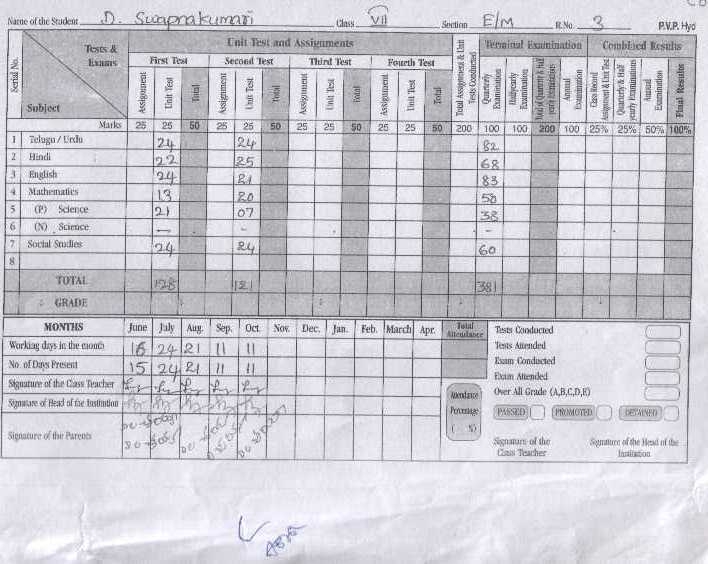 Name of the Student D. Swapnakumari Class VII Section E/M R.No 3 P.V.P. Hyd
Serial No. Tests & Exams Subject Unit Test and Assignments Terminal Examination Combined Results
First Test Second Test Third Test Fourth Test
Assignment Unit Test Total Assignment Unit Test Total Assignment Unit Test Total Assignment Unit Test Total Total Assignment & Unit Tests Conducted Quarterly Examination Halfyearly Examination Total of Quarterly & Half yearly Examinations Annual Examination Class Record Assignment & Unit Test Quarterly & Half yearly Examinations Annual Examination Final Results
Marks 25 25 50 25 25 50 25 25 50 25 25 50 200 100 100 200 100 25% 25% 50% 100%
1 Telugu / Urdu 24 24 82
2 Hindi 22 25 68
3 English 24 21 83
4 Mathematics 13 20 50
5 (P) Science 21 07 38
6 (N) Science — - -
7 Social Studies 24 24 60
8
TOTAL 128 121 381
GRADE
MONTHS June July Aug. Sep. Oct. Nov. Dec. Jan. Feb. March Apr. Total Attendance
Working days in the month 16 24 21 11 11
No. of Days Present 15 24 21 11 11
Signature of the Class Teacher
Signature of Head of the Institution
Signature of the Parents
Attendance Percentage ( %)
Tests Conducted
Tests Attended
Exam Conducted
Exam Attended
Over All Grade (A,B,C,D,E)
PASSED PROMOTED DETAINED
Signature of the Class Teacher Signature of the Head of the Institution